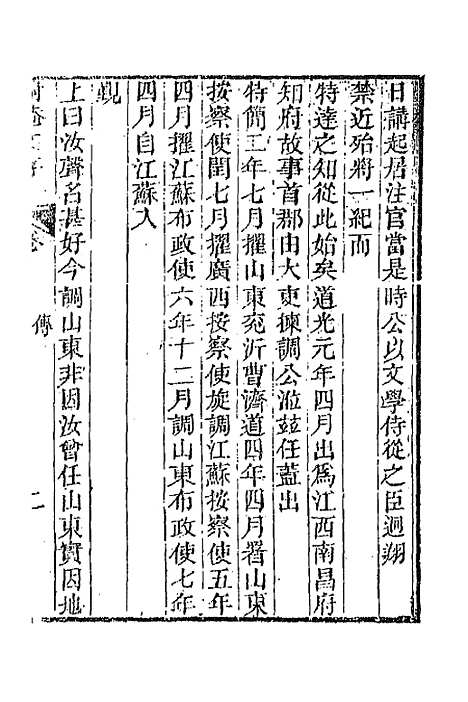 日講起居注官當是時公以文學侍從之臣迴翔
禁近殆將一紀而
特達之知從此始矣道光元年四月出為江西南昌府
知府故事首郡由大吏揀調公涖茲任蓋出
特簡三年七月擢山東兖沂曹濟道四年四月署山東
按察使閏七月擢廣西按察使旋調江蘇按察使五年
四月擢江蘇布政使六年十二月調山東布政使七年
四月自江蘇入
覲
上曰汝聲名甚好今調山東非因汝曾任山東實因地
傳
二